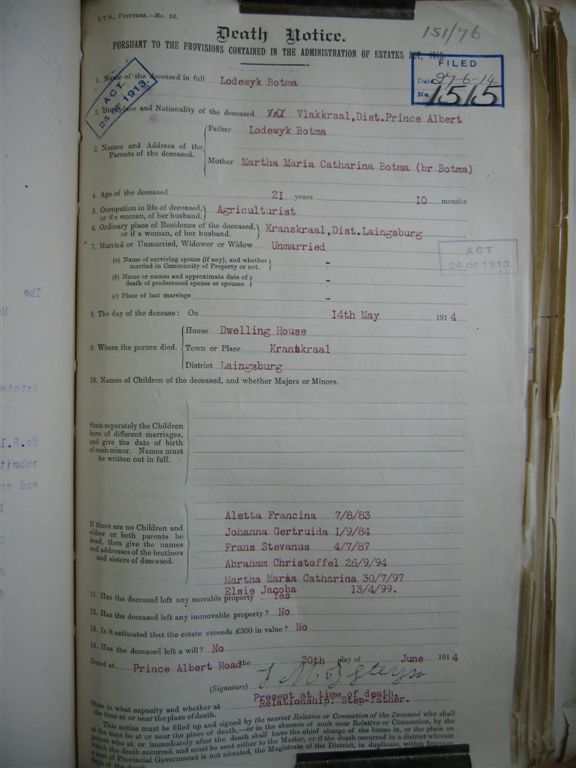 T.T.S., PRINTERS.—No. 56.
151/76
Death Notice.
PURSUANT TO THE PROVISIONS CONTAINED IN THE ADMINISTRATION OF ESTATES ACT, 1913.
FILED
Date 27-6-14
No. 1515
ACT.
24 OF 1913.
1. Name of the deceased in full Lodewyk Botma
2. Birthplace and Nationality of the deceased Vlakkraal,Dist.Prince Albert
3. Names and Address of the Parents of the deceased.
Father Lodewyk Botma
Mother Martha Maria Catharina Botma (br Botma)
4. Age of the deceased 21 years 10 months
5. Occupation in life of deceased, or if a woman, of her husband. Agriculturist
6. Ordinary place of Residence of the deceased, or if a woman, of her husband. Kranskraal,Dist.Laingsburg
7. Married or Unmarried, Widower or Widow Unmarried
ACT
24 OF 1913.
(a) Name of surviving spouse (if any), and whether married in Community of Property or not. -
(b) Name or names and approximate date of death of predeceased spouse or spouses -
(c) Place of last marriage -
8. The day of the decease: On 14th May 1914
9. Where the person died.
House Dwelling House
Town or Place Kranskraal
District Laingsburg
10. Names of Children of the deceased, and whether Majors or Minors.
State separately the Children
born of different marriages,
and give the date of birth
of each minor. Names must
be written out in full.
If there are no Children and
either or both parents be
dead, then give the names
and addresses of the brothers
and sisters of deceased.
Aletta Francina 7/8/83
Johanna Gertruida 1/9/84
Frans Stevanus 4/7/87
Abraham Christoffel 26/9/94
Martha Maria Catharina 30/7/97
Elsie Jacoba 13/4/99.
11. Has the deceased left any movable property Yes
12. Has the deceased left any immovable property? No
13. Is it estimated that the estate exceeds £300 in value? No
14. Has the deceased left a will? No
Dated at Prince Albert Road the 20th day of June 1914
(Signature)
State in what capacity and whether at the time at or near the place of death.
Present at time of death.
Relationship: Step-father.
This notice must be filled up and signed by the nearest Relative or Connection of the Deceased who shall
at the time be at or near the place of death,—or in the absence of such near Relative or Connection, by the
person who at, or immediately after the death shall have the chief charge of the house in, or the place on
which the death occurred, and must be sent either to the Master, or if the death occurred in a district wherein